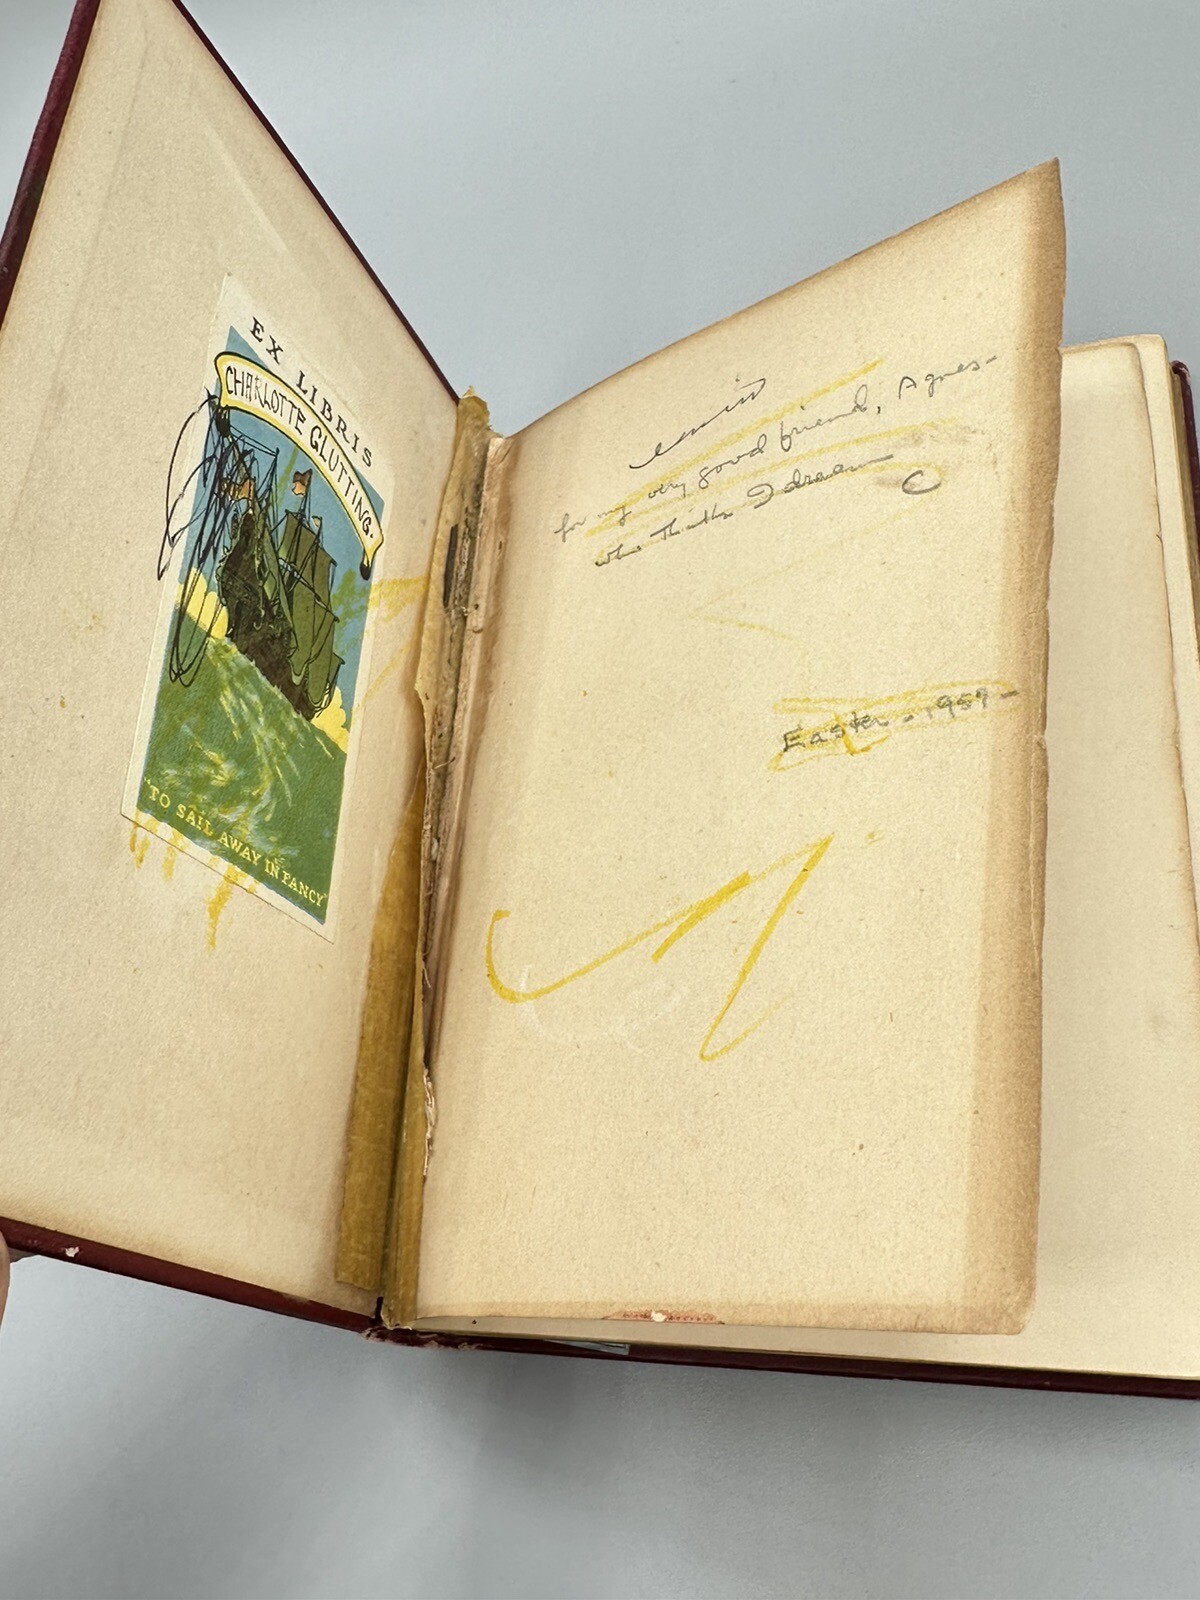 EX LIBRIS
CHARLOTTE GLUTTING.
"TO SAIL AWAY IN FANCY"
for my very good friend, Agnes-
who thinks I dream C
Easter - 1959 -